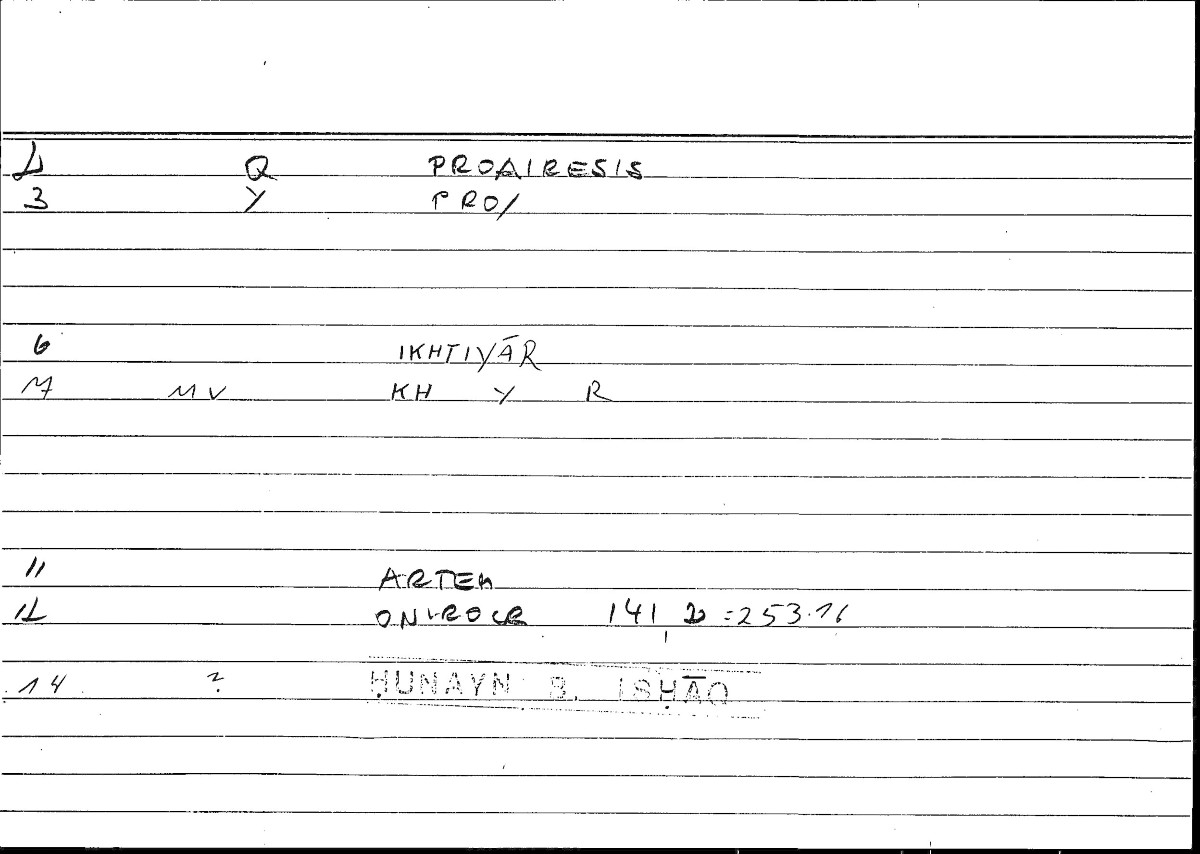 2 Q PROAIRESIS
3 Y PRO/
6 IKHTIYĀR
7 MV KH Y R
11 ARTEM
12 ONIROCR 141, 2 =253.16
14 ? ḤUNAYN B. ISḤĀQ